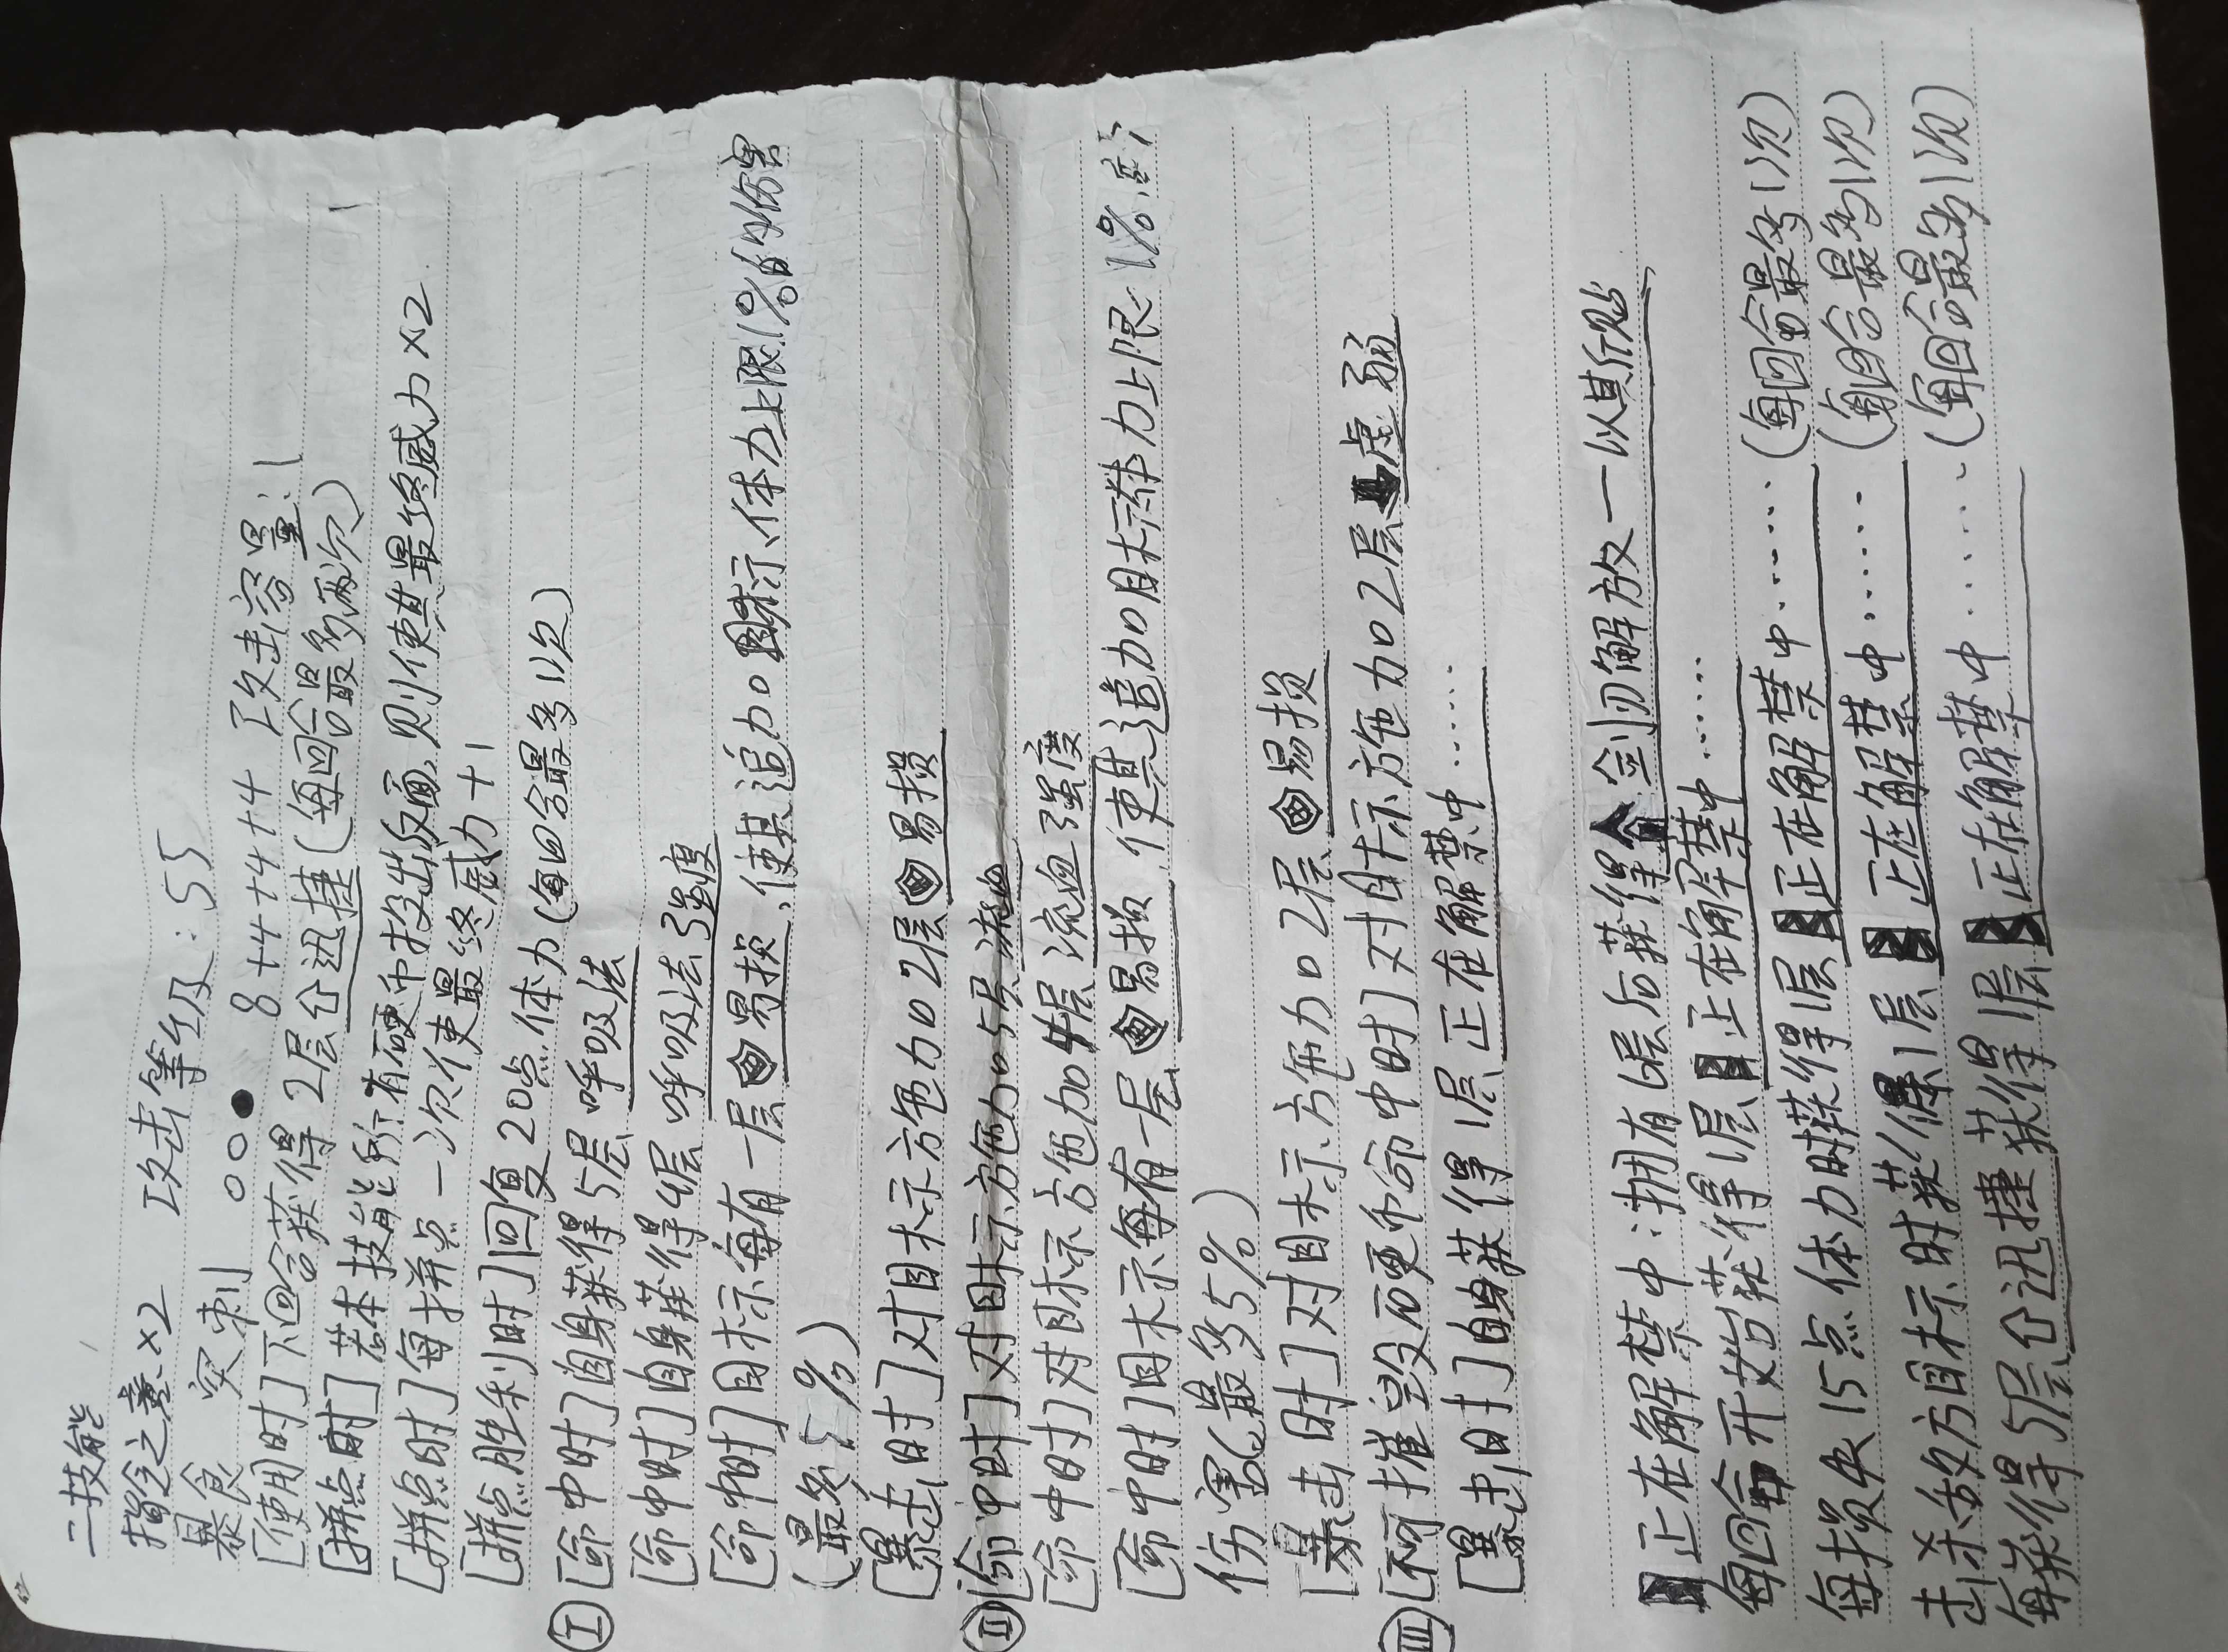 二技能
指令之意×2 攻击等级:55
暴食 突刺 ○○● 8 +4 +4 +4 攻击容量:1
[使用时]下回合获得 2层迅捷(每回合最多两次)
[拼点时]若本技能所有硬币投出反面,则使其最终威力×2
[拼点时]每拼点一次使最终威力+1
[拼点胜利时]回复20点体力(每回合最多1次)
Ⅰ [命中时]自身获得5层呼吸法
[命中时]自身获得4层呼吸法强度
[命中时]目标每有一层易损,使其追加目标体力上限1%的伤害
(最多5%)
[暴击时]对目标方施加2层易损
Ⅱ [命中时]对目标方施加5层流血
[命中时]对目标方施加4层流血强度
[命中时]目标每有一层易损,使其追加目标体力上限1%
伤害(最多5%)
[暴击时]对目标方施加2层易损
Ⅲ [不可摧毁硬币命中时]对目标方施加2层虚弱
[暴击时]自身获得1层正在解禁中……
正在解禁中:拥有6层后获得剑刃解放—以其所贴
每回合开始获得1层正在解禁中……
每损失15点体力时获得1层正在解禁中……(每回合最多1次)
击杀敌方目标时获得1层正在解禁中……(每回合最多1次)
每获得5层迅捷获得1层正在解禁中……(每回合最多1次)